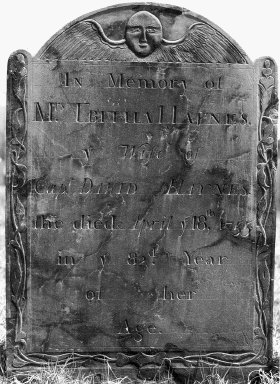 In Memory of
Mrs. Tbitha Haynes
y Wife of
Capt. David Haynes
she died April y 18th
in y 82d Year
of her
Age.